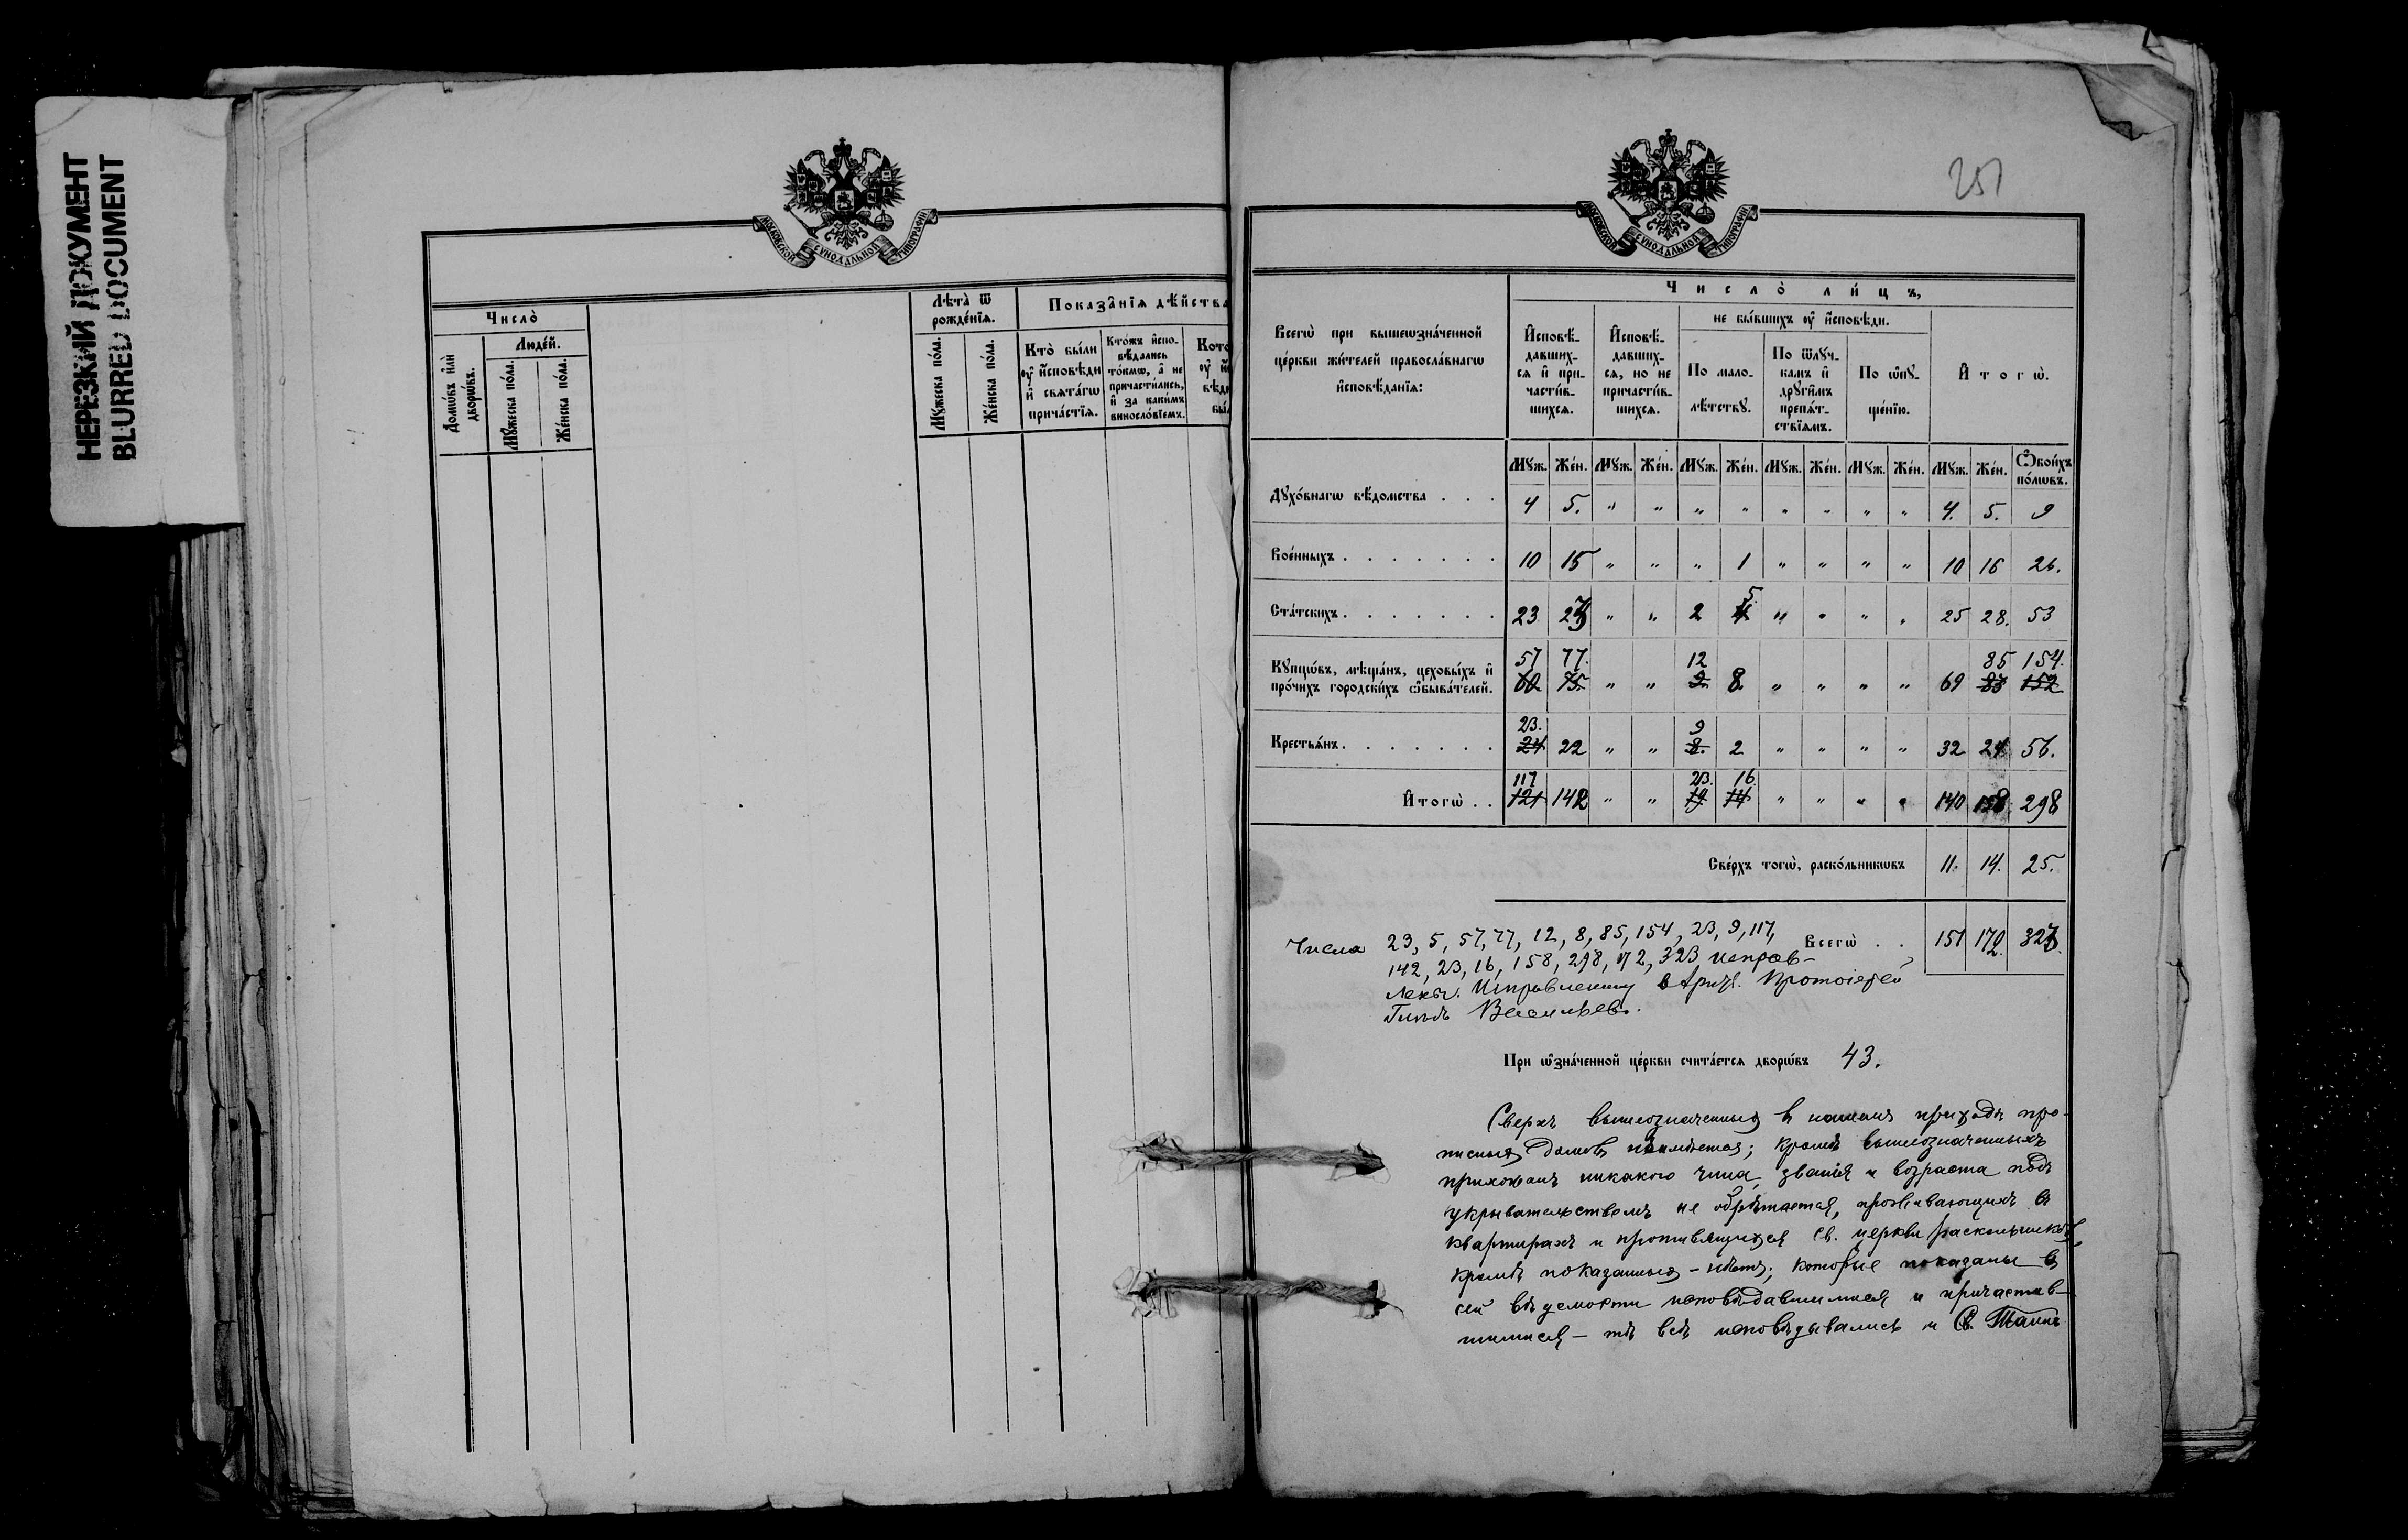 НЕРЕЗКИЙ ДОКУМЕНТ
BLURRED DOCUMENT
МОСКОВСКОЙ СѴНОДАЛЬНОЙ ТИПОГРАФІИ
Число̀
Домѡ́въ и҆лѝ дворѡ́въ.
Люде́й.
Мꙋ́жеска по́ла.
Же́нска по́ла.
Лѣта̀ ѿ рожде́нїѧ.
Мꙋ́жеска по́ла.
Же́нска по́ла.
Показа̑нїѧ дѣ́йства
Кто̀ бы́ли ᲂу҆ и҆́сповѣди и҆ свѧта́гѡ прича́стїѧ.
Кто́жъ и҆спо-
вѣ́дались
то́кмѡ, а҆ не
причасти́лись,
и҆ за каки́мъ
винослові́емъ.
251
МОСКОВСКОЙ СѴНОДАЛЬНОЙ ТИПОГРАФІИ
Всегѡ̀ при вышеѡзна́ченной
це́ркви жи́телей правосла́внагѡ
и҆сповѣ́данїѧ:
Число̀ ли́цъ,
И҆сповѣ́-
давших-
сѧ и҆ при-
части́в-
шихсѧ.
И҆сповѣ́-
давших-
сѧ, но не
причасти́в-
шихсѧ.
не бы́вшихъ ᲂу҆ и҆́сповѣди.
По мало-
лѣ́тствꙋ.
По ѿлꙋ́ч-
камъ и҆
дрꙋги̑мъ
препѧ́т-
ствїѧмъ.
По ѡ҆пꙋ-
ще́нїю.
И҆тогѡ̀.
Мꙋж. Жен. Мꙋж. Жен. Мꙋж. Жен. Мꙋж. Жен. Мꙋж. Жен. Мꙋж. Жен. Ѻ҆бои́хъ по́лѡвъ.
Дꙋхо́внагѡ вѣ́домства . . . 4 5. " " " " " " " " 4. 5. 9
Вое́нныхъ . . . . . . . 10 15 " " " 1 " " " " 10 16 26.
5.
Ста́тскихъ . . . . . . . 23 23 " " 2 4 " " " " 25 28. 53
57 77. 12 85 154.
Кꙋпцѡ́въ, мѣща́нъ, цеховы́хъ и҆
про́чихъ городски́хъ ѻ҆быва́телей. 60 75. " " 9. 8. " " " " 69 83 152
23. 9
Крестьѧ́нъ . . . . . . . 24 22 " " 8. 2 " " " " 32 24 56.
117 23. 16
И҆тогѡ̀ . . 121 142 " " 19 14 " " " " 140 158. 298
Све́рхъ тогѡ̀, раско́льникѡвъ 11. 14. 25.
Числа 23, 5, 57, 77, 12, 8, 85, 154, 23, 9, 117,
Всегѡ̀ . . 151 172. 323.
142, 23, 16, 158, 298, 172, 323 исправ-
лены. Протоіерей
Васильев.
При ѡ҆зна́ченной це́ркви счита́етсѧ дворѡ́въ 43.
Сверхъ вышеозначенныхъ в нашемъ приходѣ про-
писныхъ домовъ неимѣется; кромѣ вышеозначенныхъ
прихожанъ никакого чина, званія и возраста подъ
укрывательствомъ не обрѣтается, проживающихъ в
квартирахъ и противящихся св. церкви раскольниковъ,
кромѣ показанныхъ – нѣтъ; которые показаны въ
сей вѣдомости исповѣдавшимися и причастив-
шимися – тѣ всѣ исповѣдывались и Св. Таинъ